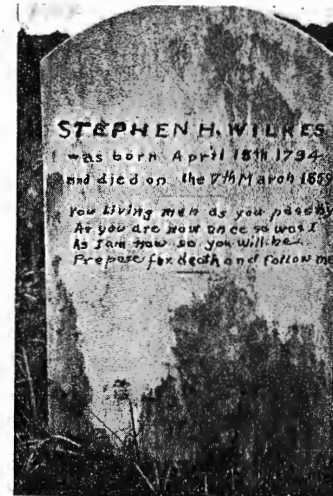 STEPHEN H. WILKES
was born April 15th 1794
and died on the 7th March 1859
You Living men as you pass by
As you are now once so was I
As I am now so you will be
Prepare for death and follow me